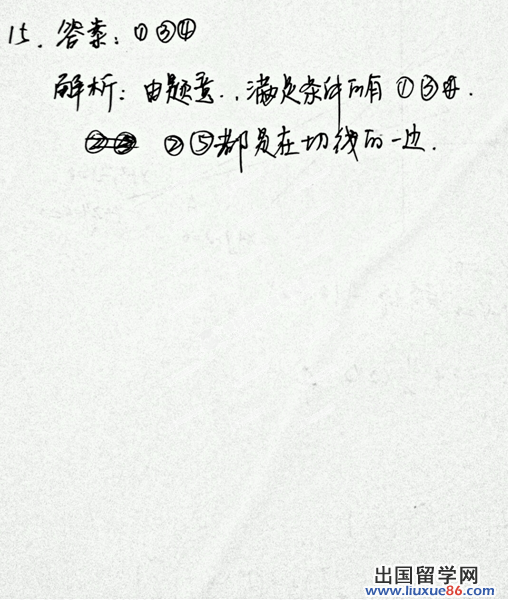 15. 答案: ①③④
解析: 由题意, 满足条件的有 ①③④.
②③ ②⑤都是在切线的一边.
出国留学网
www.liuxue86.com